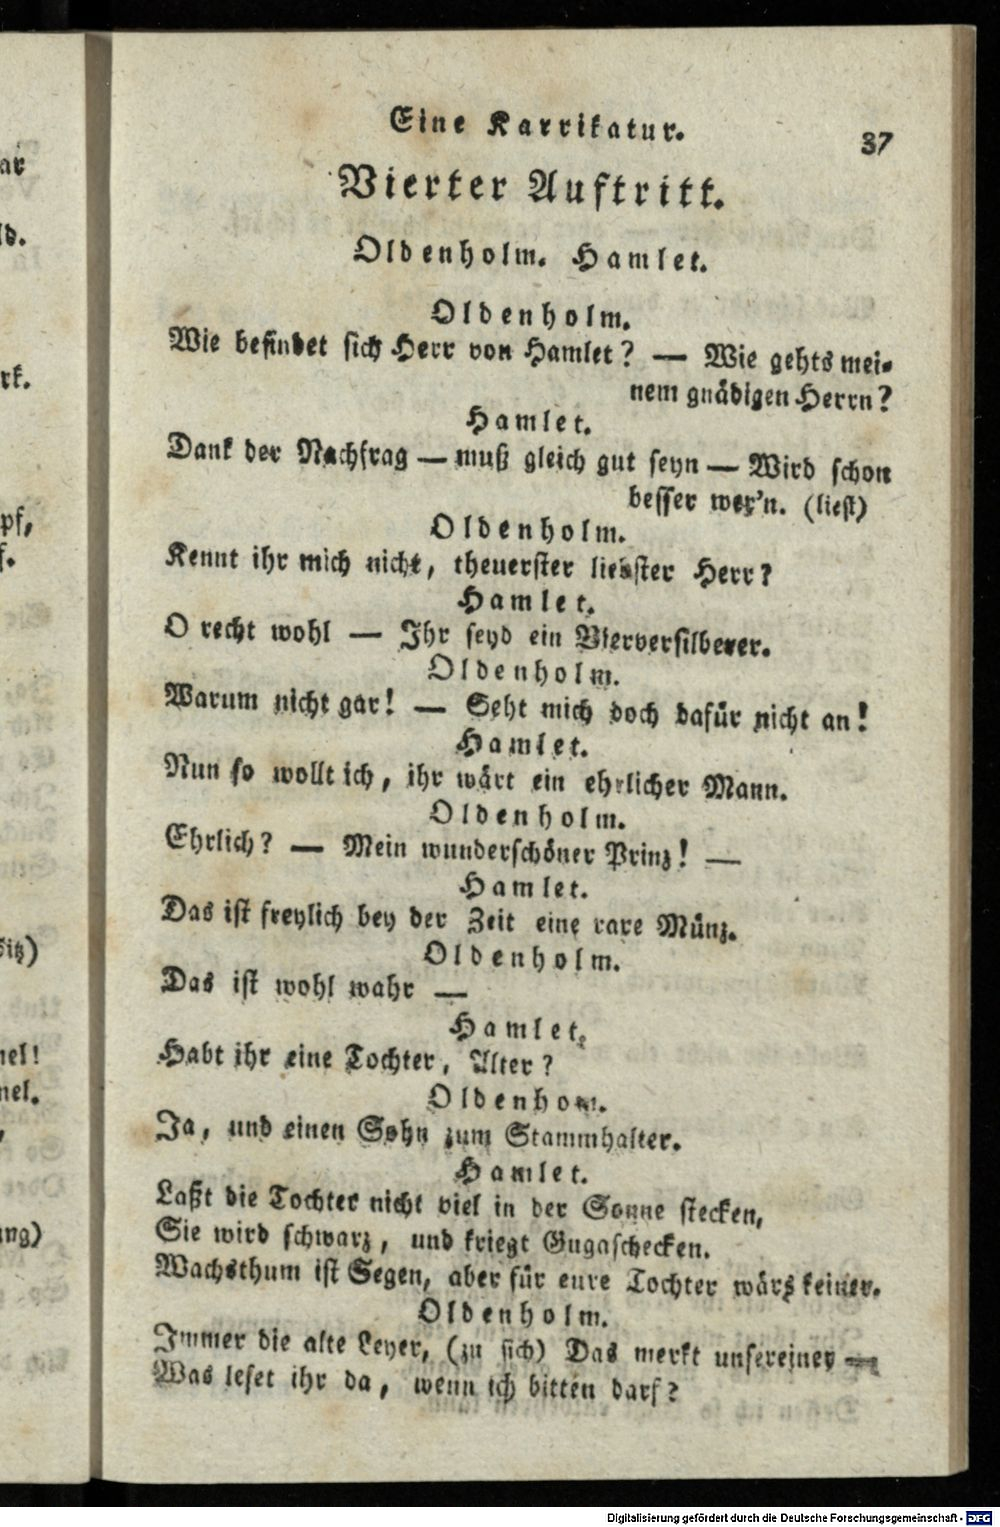 Eine Karrikatur.
37
Vierter Auftritt.
Oldenholm. Hamlet.
Oldenholm.
Wie befindet sich Herr von Hamlet? — Wie gehts mei-
nem gnädigen Herrn?
Hamlet.
Dank der Nachfrag — muß gleich gut seyn — Wird schon
besser wer'n. (liest)
Oldenholm.
Kennt ihr mich nicht, theuerster liebster Herr?
Hamlet.
O recht wohl — Ihr seyd ein Bierversilberer.
Oldenholm.
Warum nicht gar! — Seht mich doch dafür nicht an!
Hamlet.
Nun so wollt ich, ihr wärt ein ehrlicher Mann.
Oldenholm.
Ehrlich? — Mein wunderschöner Prinz! —
Hamlet.
Das ist freylich bey der Zeit eine rare Münz.
Oldenholm.
Das ist wohl wahr —
Hamlet.
Habt ihr eine Tochter, Alter?
Oldenhom.
Ja, und einen Sohn zum Stammhalter.
Hamlet.
Laßt die Tochter nicht viel in der Sonne stecken,
Sie wird schwarz, und kriegt Gugaschecken.
Wachsthum ist Segen, aber für eure Tochter wärs keiner.
Oldenholm.
Immer die alte Leyer, (zu sich) Das merkt unsereiner —
Was leset ihr da, wenn ich bitten darf?
ar
ld.
rk.
pf,
f.
itz)
nel!
nel.
,
ung)
Digitalisierung gefördert durch die Deutsche Forschungsgemeinschaft - DFG